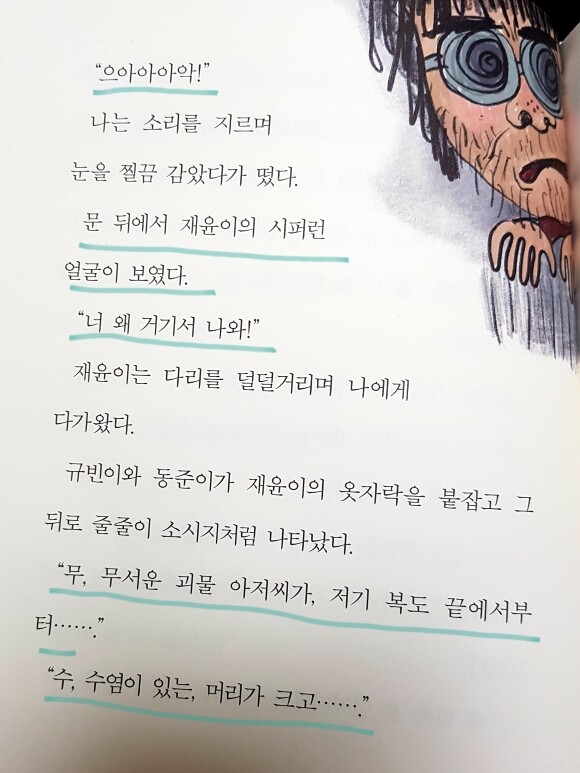 “으아아아악!”
나는 소리를 지르며
눈을 찔끔 감았다가 떴다.
문 뒤에서 재윤이의 시퍼런
얼굴이 보였다.
“너 왜 거기서 나와!”
재윤이는 다리를 덜덜거리며 나에게
다가왔다.
규빈이와 동준이가 재윤이의 옷자락을 붙잡고 그
뒤로 줄줄이 소시지처럼 나타났다.
“무, 무서운 괴물 아저씨가, 저기 복도 끝에서부
터…….”
“수, 수염이 있는, 머리가 크고…….”